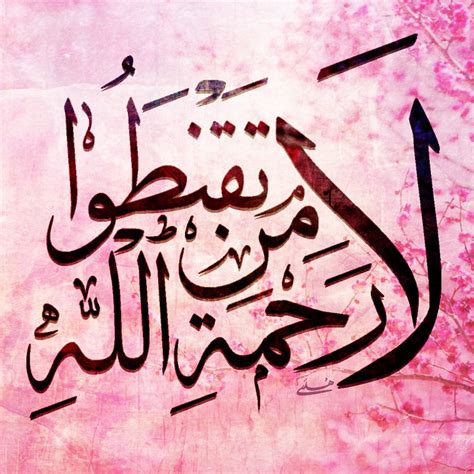 لَا تَقْنَطُوا
مِنْ
رَحْمَةِ اللَّهِ